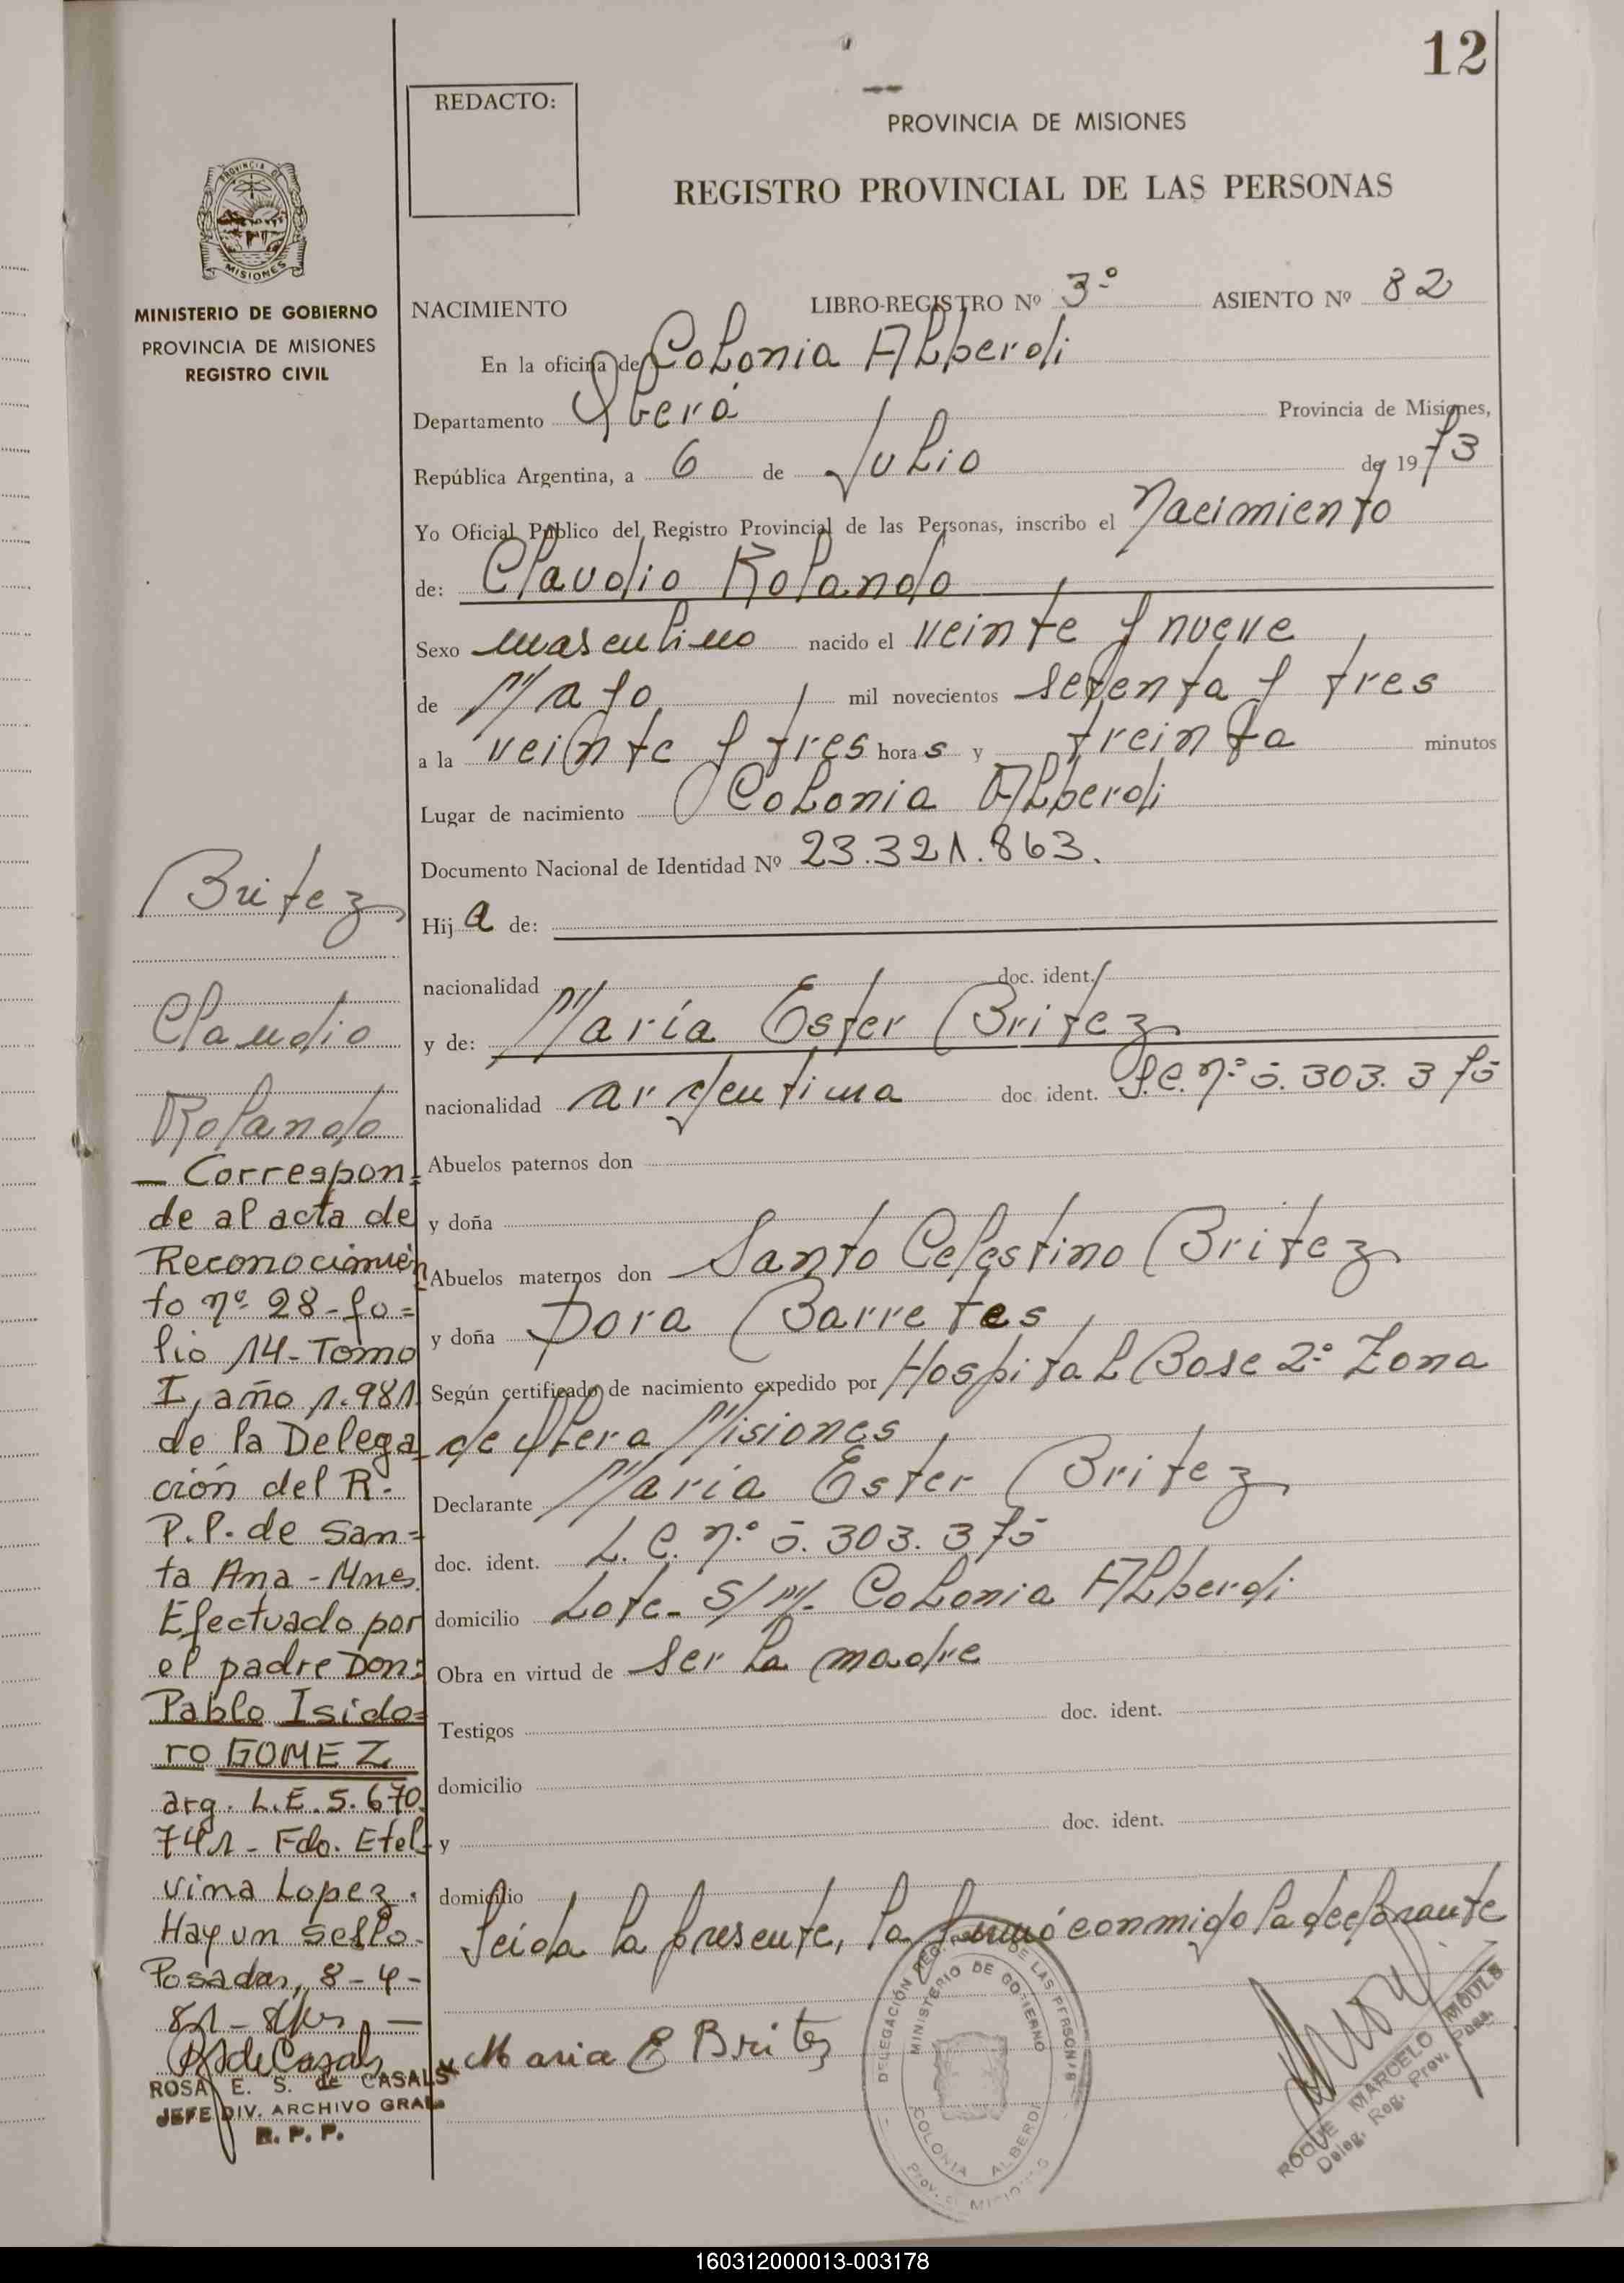 12
REDACTO:
PROVINCIA DE MISIONES
REGISTRO PROVINCIAL DE LAS PERSONAS
PROVINCIA DE
MISIONES
MINISTERIO DE GOBIERNO
PROVINCIA DE MISIONES
REGISTRO CIVIL
NACIMIENTO LIBRO-REGISTRO Nº 3º ASIENTO Nº 82
En la oficina de Colonia Alberdi
Departamento Oberá Provincia de Misiones,
República Argentina, a 6 de Julio de 1973
Yo Oficial Público del Registro Provincial de las Personas, inscribo el Nacimiento
de: Claudio Rolando
Sexo masculino nacido el veinte y nueve
de Mayo mil novecientos setenta y tres
a la veinte y tres horas y treinta minutos
Lugar de nacimiento Colonia Alberdi
Documento Nacional de Identidad Nº 23.321.863.
Hija de:
nacionalidad doc. ident.
y de: María Ester Britez
nacionalidad argentina doc. ident. L.C. nº 5.303.375
Abuelos paternos don
y doña
Abuelos maternos don Santo Celestino Britez
y doña Dora Barretes
Según certificado de nacimiento expedido por Hospital Base 2º Zona
de Obera Misiones
Declarante María Ester Britez
doc. ident. L.C. nº 5.303.375
domicilio Lote S/Nº Colonia Alberdi
Obra en virtud de ser la madre
Testigos doc. ident.
domicilio
y doc. ident.
domicilio
Leída la presente, la firmó conmigo la declarante
Maria E Britez
DELEGACIÓN REG. DE LAS PERSONAS
MINISTERIO DE GOBIERNO
COLONIA ALBERDI
Prov. MISIONES
ROQUE MARCELO MOULS
Deleg. Reg. Prov. Pnas.
Britez
Claudio
Rolando
— Correspon=
de al acta de
Reconocimien
to nº 28-fo=
lio 14-Tomo
I, año 1.981
de la Delega
ción del R.
P.P. de San=
ta Ana - Mnes.
Efectuado por
el padre Don:
Pablo Isido=
ro GOMEZ
arg. L.E. 5.670.
741 - Fdo. Etel-
vina Lopez.
Hay un sello.
Posadas, 8-4-
81 —
RSdeCasals
ROSA E. S. de CASALS
JEFE DIV. ARCHIVO GRAL
R. P. P.
160312000013-003178